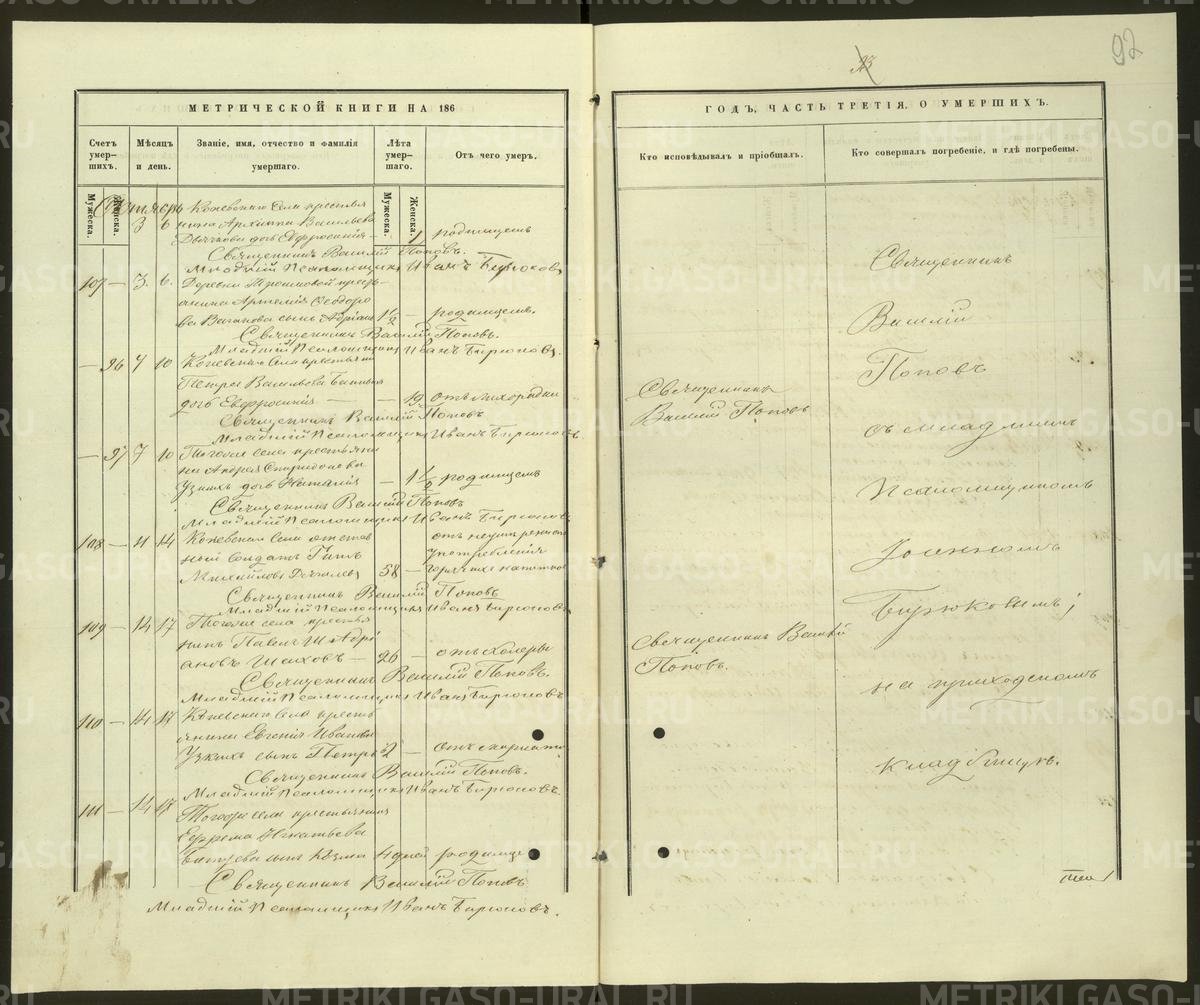 92
МЕТРИЧЕСКОЙ КНИГИ НА 186
Счетъ умер-шихъ.
Мужеска.
Женска.
Мѣсяцъ и день.
Званіе, имя, отчество и фамилія умершаго.
Лѣта умер-шаго.
Мужеска.
Женска.
Отъ чего умеръ.
Коневскаго села крестья
3 6 нина Архипа Васильева
дочь Евфросинія 1 родимцемъ
Священникъ Василій Поповъ.
Младшій Псаломщикъ Иванъ Бирюковъ
107 — 3. 6. Деревни крестья
янина Артемія Ѳеодоро
ва Ваганова сынъ Адріанъ 1½ — родимцемъ.
Священникъ Василій Поповъ.
Младшій Псаломщикъ Иванъ Бирюковъ.
— 96 7 10 Коневскаго села крестьянина
Петра Васильева
дочь Евфросинія — — 19 отъ лихорадки
Священникъ Василій Поповъ
Младшій Псаломщикъ Иванъ Бирюковъ
— 97 7 10 Тогоже села крестьяни
на Андрея Спиридонова
Узкихъ дочь Наталія — 1½ родимцемъ
Священникъ Василій Поповъ
Младшій Псаломщикъ Иванъ Бирюковъ
108 — 11 14 Коневскаго села отстав
ной солдатъ Титъ
Михайловъ 58 —
отъ неумѣреннаго
употребленія
горячихъ напитковъ
Священникъ Василій Поповъ
Младшій Псаломщикъ Иванъ Бирюковъ
109 — 14 17 Тогоже села крестья
нинъ Павелъ Адрі
ановъ Шаховъ — 26 — отъ холеры
Священникъ Василій Поповъ.
Младшій Псаломщикъ Иванъ Бирюковъ
110 — 14 17 Коневскаго села кресть
янина Евгенія Иванова
Узкихъ сынъ Петръ 2 — отъ скарлати
Священникъ Василій Поповъ.
Младшій Псаломщикъ Иванъ Бирюковъ.
111 — 14 17 Тогоже села крестьянина
Ефрема Игнатьева
сынъ Козма 4 дней родимце
Священникъ Василій Поповъ
Младшій Псаломщикъ Иванъ Бирюковъ.
ГОДЪ, ЧАСТЬ ТРЕТІЯ, О УМЕРШИХЪ.
Кто исповѣдывалъ и пріобщалъ.
Кто совершалъ погребеніе, и гдѣ погребены.
Священникъ
Василій Поповъ
Священникъ Василій
Поповъ.
Священникъ
Василій
Поповъ
съ младшимъ
Псаломщикомъ
Іоанномъ
Бирюковымъ;
на приходскомъ
кладбищѣ.
METRIKI.GASO-URAL.RU